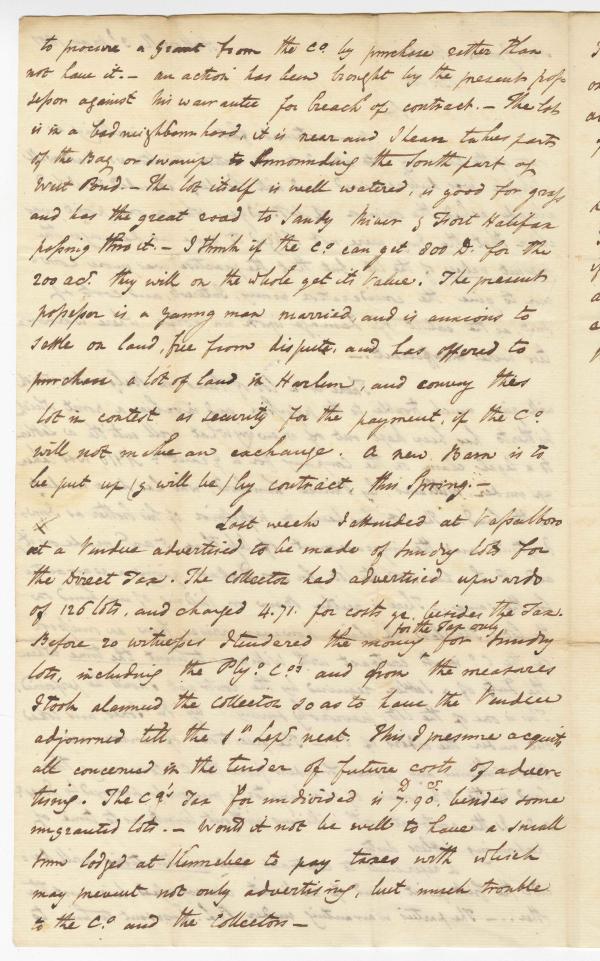 to procure a grant from the Co. by purchase rather than
not have it. — an action has been brought by the present pos-
sessor against his warrantee for breach of contract. — The lot
is in a bad neighbourhood, it is near and I hear takes part
of the Bag or swamp surrounding the South part of
West Pond. — The lot itself is well watered, is good for grass
and has the great road to Sandy River & Fort Halifax
passing thro it. — I think if the Co. can get 800 D. for the
200 acs. they will on the whole get its value. The present
possessor is a young man married, and is anxious to
settle on land, free from dispute, and has offered to
purchase a lot of land in Harlem, and convey this
lot in contest as security for the payment, if the Co.
will not make an exchange. A new Barn is to
be put up (& will be) by contract, this Spring. —
X Last week I attended at Vassalboro
at a Vendue advertised to be made of sundry lots for
the Direct Tax. The Collector had advertised upwards
of 126 lots, and charged 4.71. for costs besides the Tax.
Before 20 witnesses I tendered the money for the Tax only for sundry
lots, including the Plyo. Co's and from the measures
I took alarmed the Collector so as to have the Vendue
adjourned till the 1st Sepr next. This I presume acquits
all concerned in the tender of future costs of adver-
tising. The Co's Tax for undivided is 7 D. 90 cs. besides some
ungranted lots. — Would it not be well to have a small
sum lodged at Kennebec to pay taxes with which
may prevent not only advertising, but much trouble
to the Co. and the Collectors —